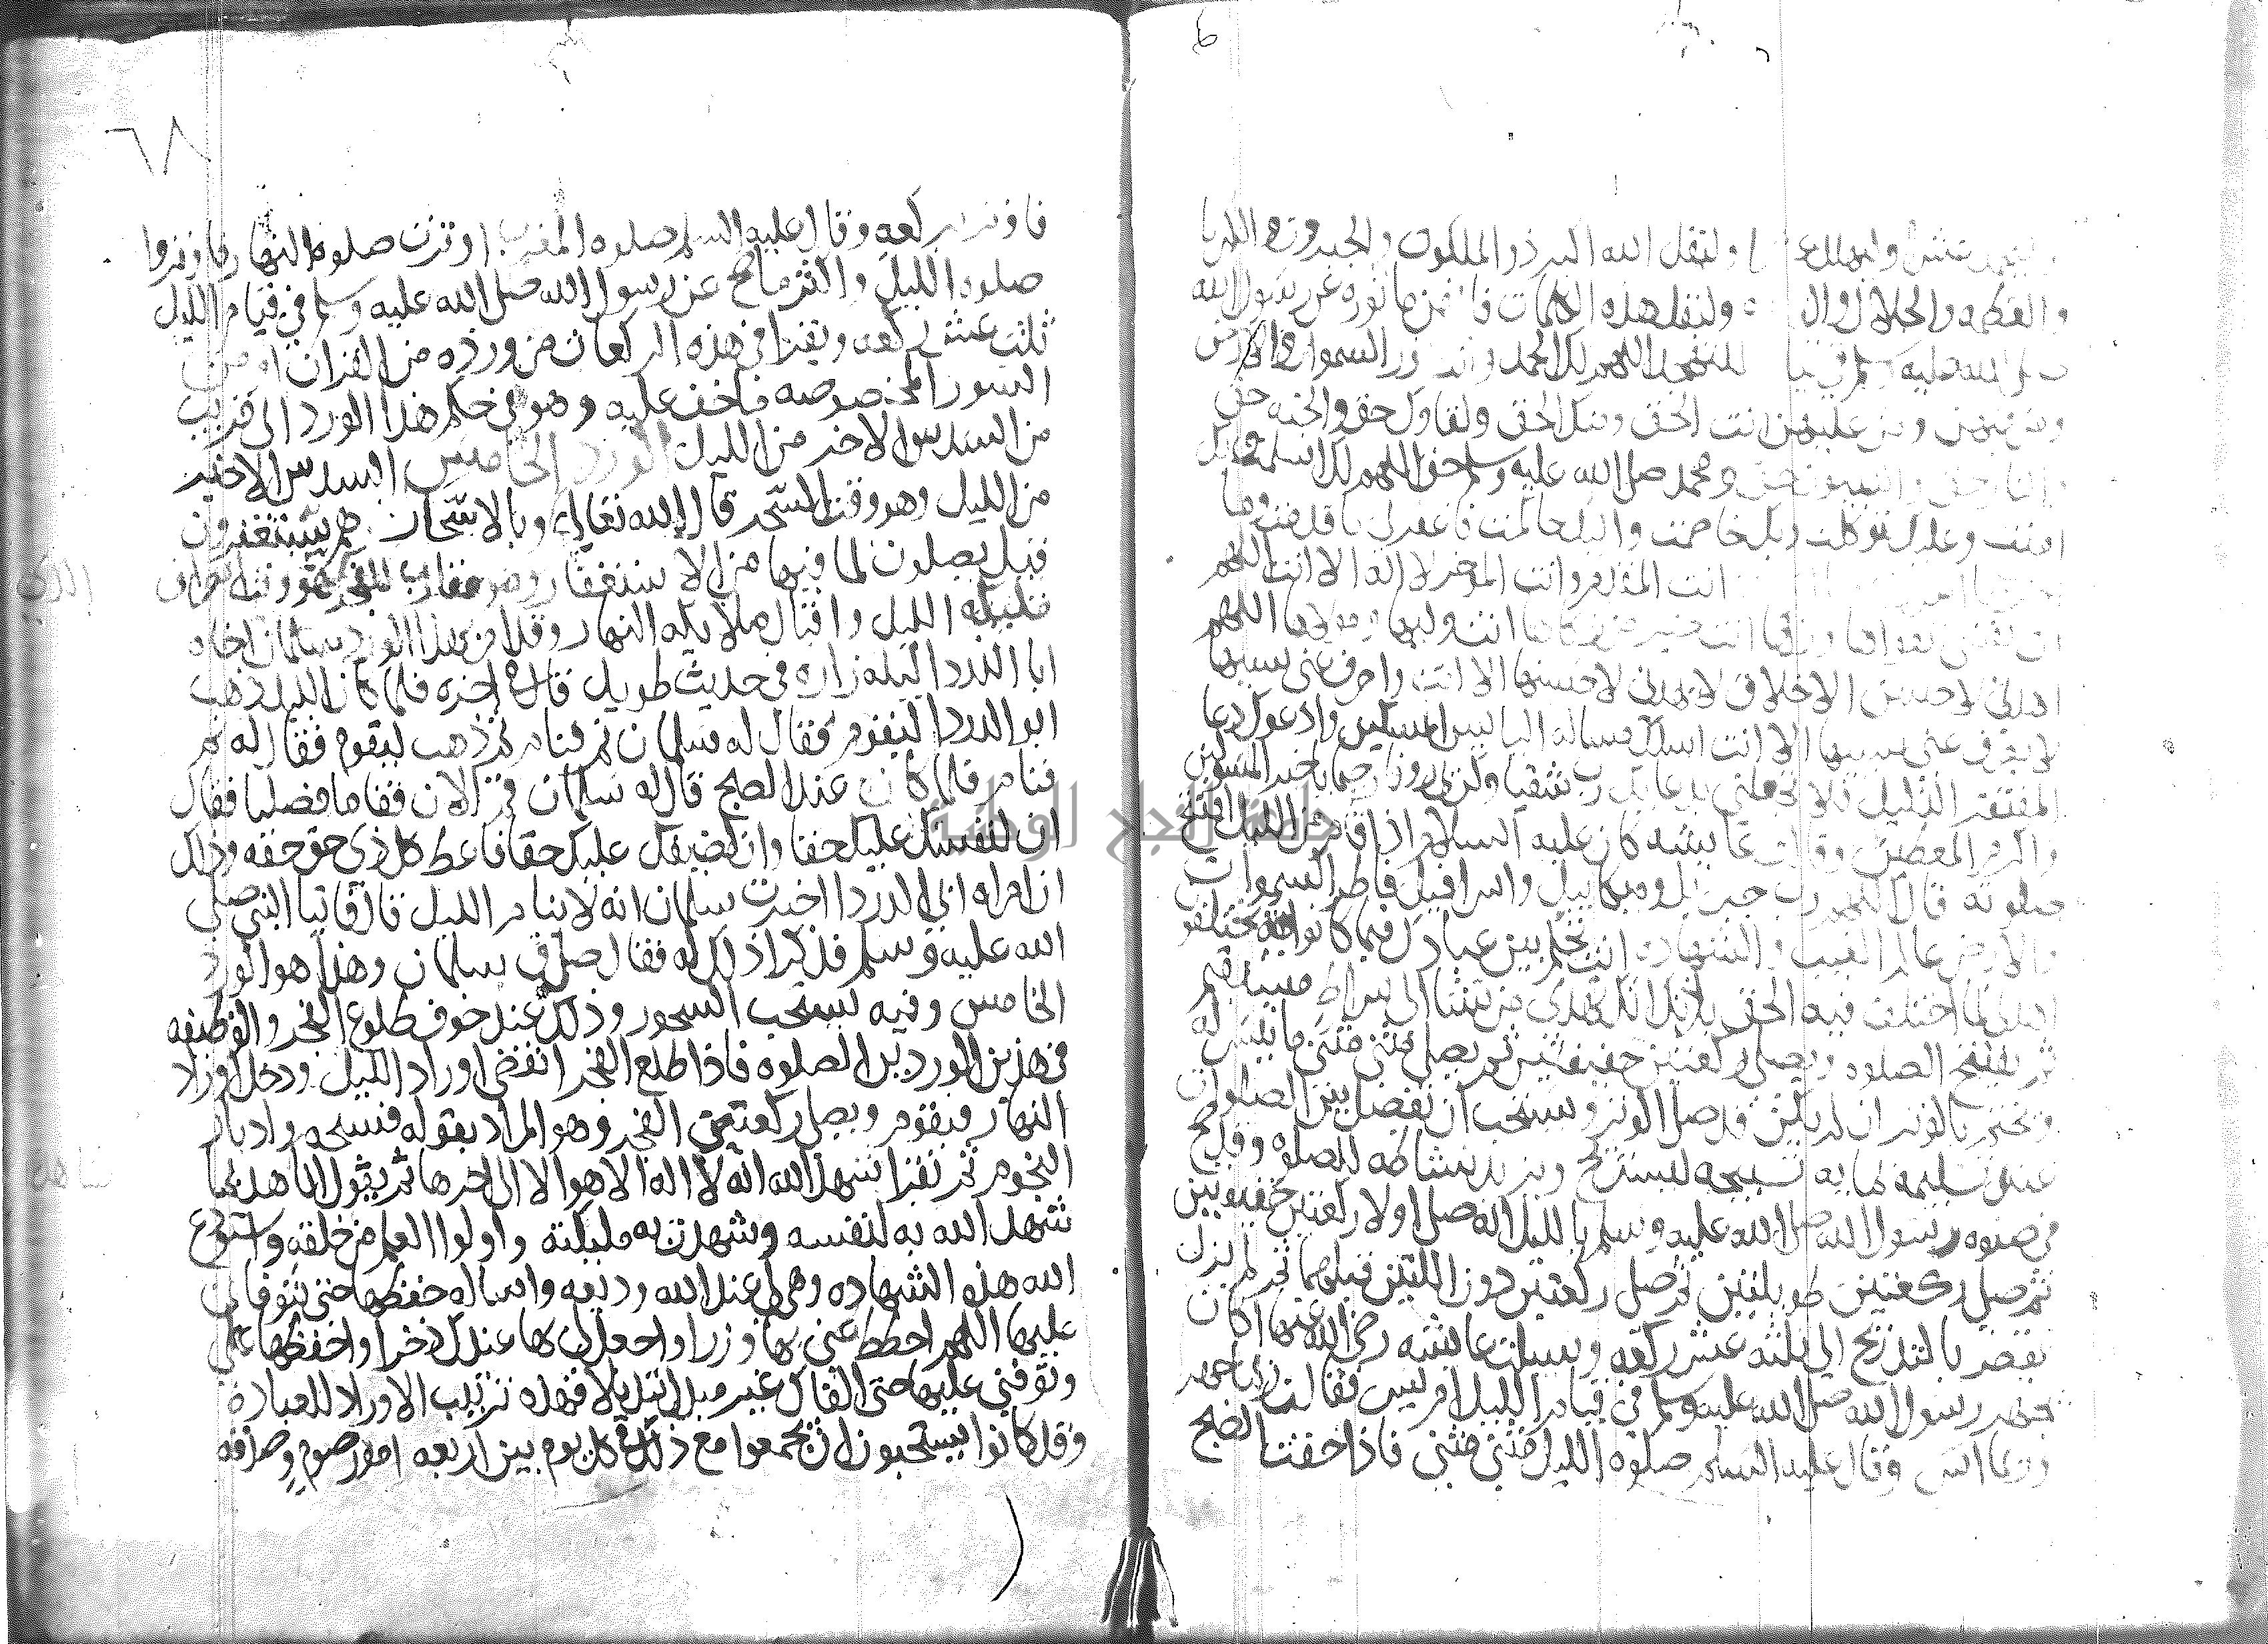 وليقل الله اكبر ذو الملكوت والجبروت والكبريا
والعظمه والجلال وال وليقل هذه الكلمات فا ماثوره عن رسول الله
صلى الله عليه وسلم في للتهجد اللهم لك الحمد وانت نور السموات والارض
ومن فيهن ومن عليهن انت الحق ومنك الحق ولقاوك حق والجنه حق
والنار حق والنبيون حق ومحمد صلى الله عليه وسلم حق اللهم لك اسلمت وبك
امنت وعليك توكلت وبك خاصمت واليك حاكمت فاغفر لي ما قدمت وما
انت المقدم وانت الموخر لا اله الا انت اللهم
ات نفسي تقواها وزكها انت خير من زكاها انت وليها ومولاها اللهم
اهدني لاحسن الاخلاق لا يهدي لاحسنها الا انت واصرف عني سيها
لا يصرف عني سيها الا انت اسلك مساله البايس المسكين وادعوك دعا
المفتقر الذليل فلا تجعلني بدعايك رب شقيا وكن بي روفا رحيما يا خير المسولين
واكرم المعطين وقالت عايشه كان عليه السلام اذا قام من الليل افتتح
صلوته قال اللهم رب جبريل وميكاييل واسرافيل فاطر السموات
والارض عالم الغيب والشهاده انت تحكم بين عبادك فيما كانوا فيه يختلفون
اهدني لما اختلف فيه من الحق باذنك انك تهدي من تشا الى صراط مستقيم
ثم يفتتح الصلوه ويصلي ركعتين خفيفتين ثم يصلي مثنى مثنى ما تيسر له
ويختم بالوتر ان لم يكن قد صلى الوتر ويستحب ان يفصل بين الصلوات
عند تسليمه بمايه تسبيحه ليستريح ويزيد نشاطه للصلوه وقد صح
في صلوه رسول الله صلى الله عليه وسلم بالليل انه صلى اولا ركعتين خفيفتين
ثم صلى ركعتين طويلتين ثم صلى ركعتين دون اللتين قبلهما ثم لم يزل
يقصر بالتدريج الى ثلثه عشر ركعه وسيلت عايشه رضي الله عنها اكان
يجهر رسول الله صلى الله عليه وسلم في قيام الليل ام يسر فقالت ربما جهر
وربما اسر وقال عليه السلم صلوه الليل مثنى مثنى فاذا خفت الصبح
٦٨
فاوتر بركعه وقال عليه السلم صلوه المغرب اوترت صلوه النهار فاوتروا
صلوه الليل واكثر ما صح عن رسول الله صلى الله عليه وسلم في قيام الليل
ثلث عشر ركعه ويقرا في هذه الركعات من ورده من القران او من
السور المخصوصه ما خف عليه وهو في حكم هذا الورد الى قريب
من السدس الاخر من الليل الورد الخامس السدس الاخير
من الليل وهو وقت السحر قال الله تعالى وبالاسحار هم يستغفرون
قيل يصلون لما فيها من الاستغفار وهو مقارب للفجر هو وقت انصراف
مليكه الليل واقبال ملايكه النهار وقد امر بهذا الورد سلمان اخاه
ابا الدردا ليله زاره في حديث طويل قال في اخره فلما كان الليل ذهب
ابو الدردا ليقوم فقال له سلمان نم فنام ثم ذهب ليقوم فقال له نم
فنام فلما كان عند الصبح قال له سلمان قم الان فقاما فصليا فقال
ان لنفسك عليك حقا وان لضيفك عليك حقا فاعط كل ذي حق حقه وذلك
ان امراه ابي الدردا اخبرت سلمان انه لا ينام الليل قال فاتيا النبي صلى
الله عليه وسلم فذكرا ذلك له فقال صدق سلمان وهذا هو الورد
الخامس وفيه يستحب السحور وذلك عند خوف طلوع الفجر والوظيفه
في هذين الوردين الصلوه فاذا طلع الفجر انقضى اوراد الليل ودخل اوراد
النهار فيقوم ويصلي ركعتي الفجر وهو المراد بقوله فسبحه وادبار
النجوم ثم يقرا شهد الله انه لا اله الا هو الا الى اخرها ثم يقول انا اشهد بما
شهد الله به لنفسه وشهدت به مليكته واولوا العلم من خلقه واستودع
الله هذه الشهاده وهي لي عند الله وديعه واساله حفظها حتى يتوفاني
عليها اللهم احطط عني بها وزرا واجعل لي بها عندك ذخرا واحفظها علي
وتوفني عليها حتى القاك غير مبدل تبديلا فهذه ترتيب الاوراد للعباده
وقد كانوا يستحبون ان يجمعوا مع ذلك في كل يوم بين اربعه امور صوم وصدقه